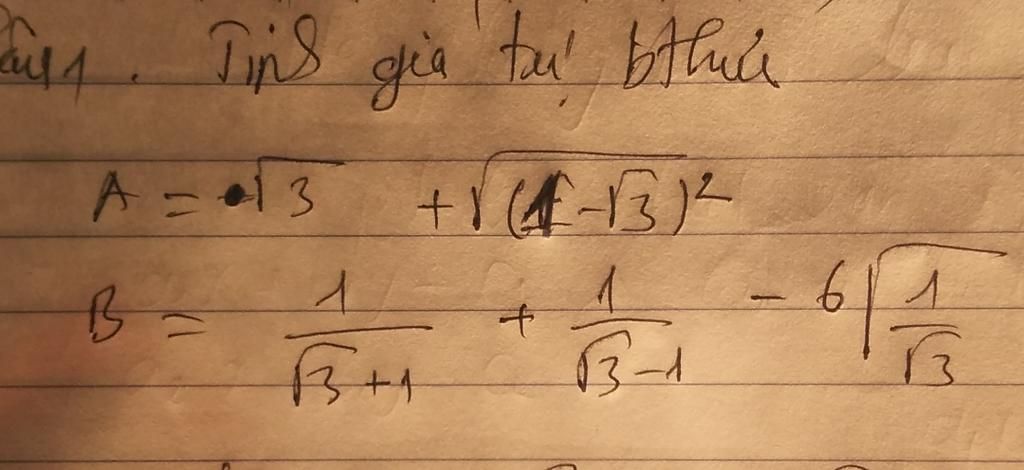 Câu 1. Tính giá trị bthức
A = √3 + √((1-√3)²)
B = 1/(√3+1) + 1/(√3-1) - 6√(1/√3)